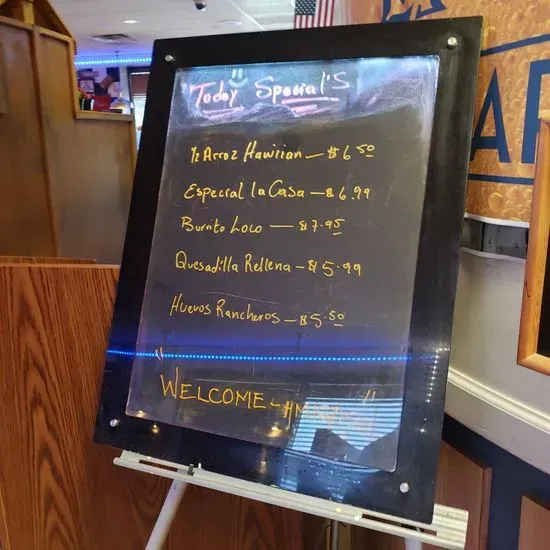 Today Special'S
1/2 Arroz Hawiian — $6.50
Especial la Casa — $6.99
Burrito Loco — $7.95
Quesadilla Rellena — $5.99
Huevos Rancheros — $5.50
"WELCOME -